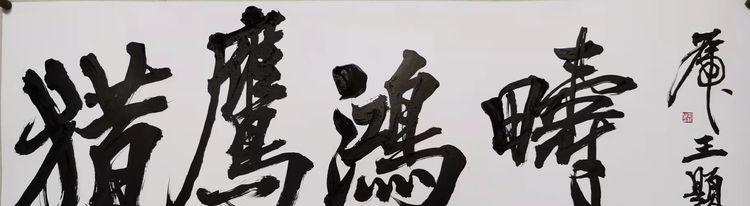 猎鹰鸿畴
虎王题